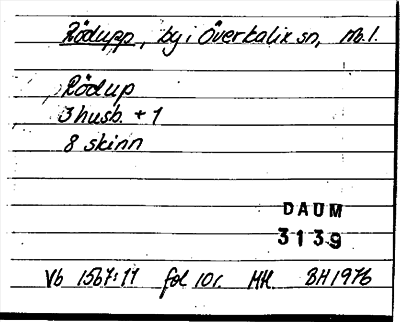 Rödupp, by i Överkalix sn, Nb.l.
Rödup
3 husb. + 1
8 skinn
DAUM
3139
Vb 1567:11 fol 10r. MH. BH1976